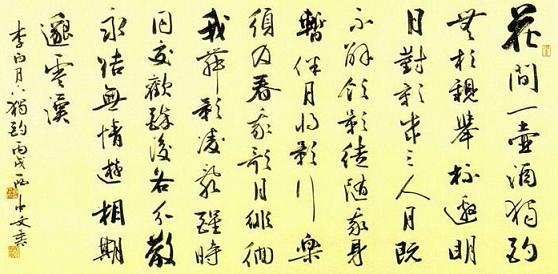 花間一壺酒獨酌
無相親舉杯邀明
月對影成三人月既
不解飲影徒隨我身
暫伴月將影行樂
須及春我歌月徘徊
我舞影凌亂醒時
同交歡醉後各分散
永結無情遊相期
邈雲漢
李白月下獨酌丙戌